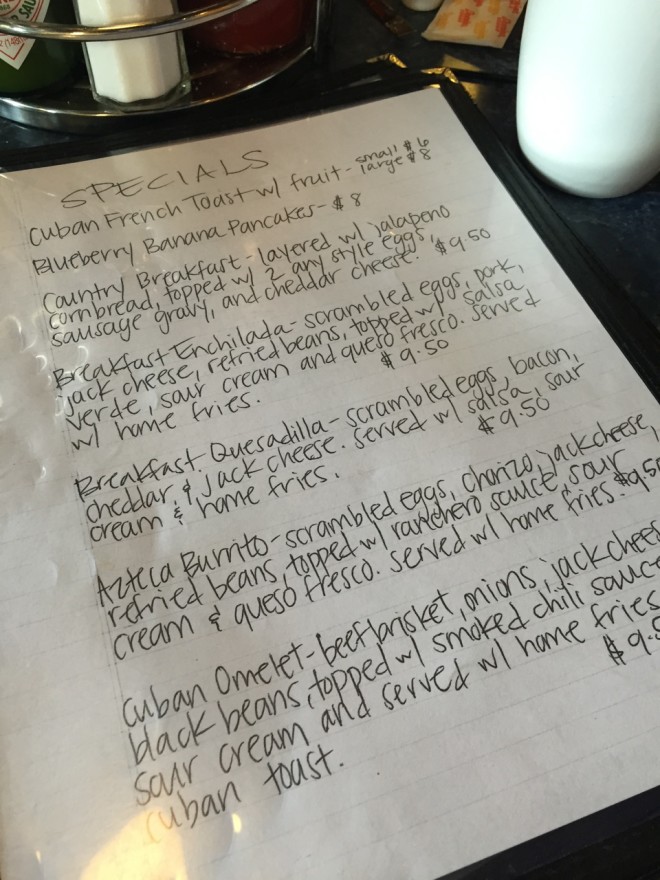 SPECIALS
Cuban French Toast w/ fruit - small $6
large $8
Blueberry Banana Pancakes - $8
Country Breakfast - layered w/ jalapeno
cornbread, topped w/ 2 any style eggs,
sausage gravy, and cheddar cheese. $9.50
Breakfast Enchilada - scrambled eggs, pork,
jack cheese, refried beans, topped w/ salsa
verde, sour cream and queso fresco. served
w/ home fries. $9.50
Breakfast Quesadilla - scrambled eggs, bacon,
cheddar & jack cheese. served w/ salsa, sour
cream & home fries. $9.50
Azteca Burrito - scrambled eggs, chorizo, jack cheese,
refried beans, topped w/ ranchero sauce, sour
cream & queso fresco. served w/ home fries. $9.50
Cuban Omelet - beef brisket, onions, jack chees
black beans, topped w/ smoked chili sauce
sour cream and served w/ home fries
cuban toast. $9.5